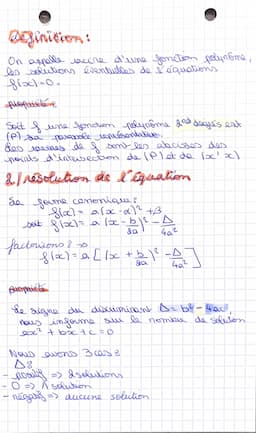 Définition :
On appelle racine d'une fonction polynôme,
les solutions éventuelles de l'équations
f(x)=0.
propriété
Soit f une fonction polynôme 2nd degrés et
(P) sa parabole représentative.
Les racines de f sont les abcisses des
points d'intersection de (P) et de (x'x)
2/ résolution de l'équation
Sa forme canonique :
f(x) = a(x-α)² + β
soit f(x) = a(x - b/2a)² - Δ/4a²
factorisons ? →
f(x) = a[(x + b/2a)² - Δ/4a²]
propriété
Le signe du discriminant Δ = b² - 4ac,
nous informe sur le nombre de solution
ax² + bx + c = 0
Nous avons 3 cas :
Δ :
- positif => 2 solutions
- 0 => 1 solution
- négatif => aucune solution